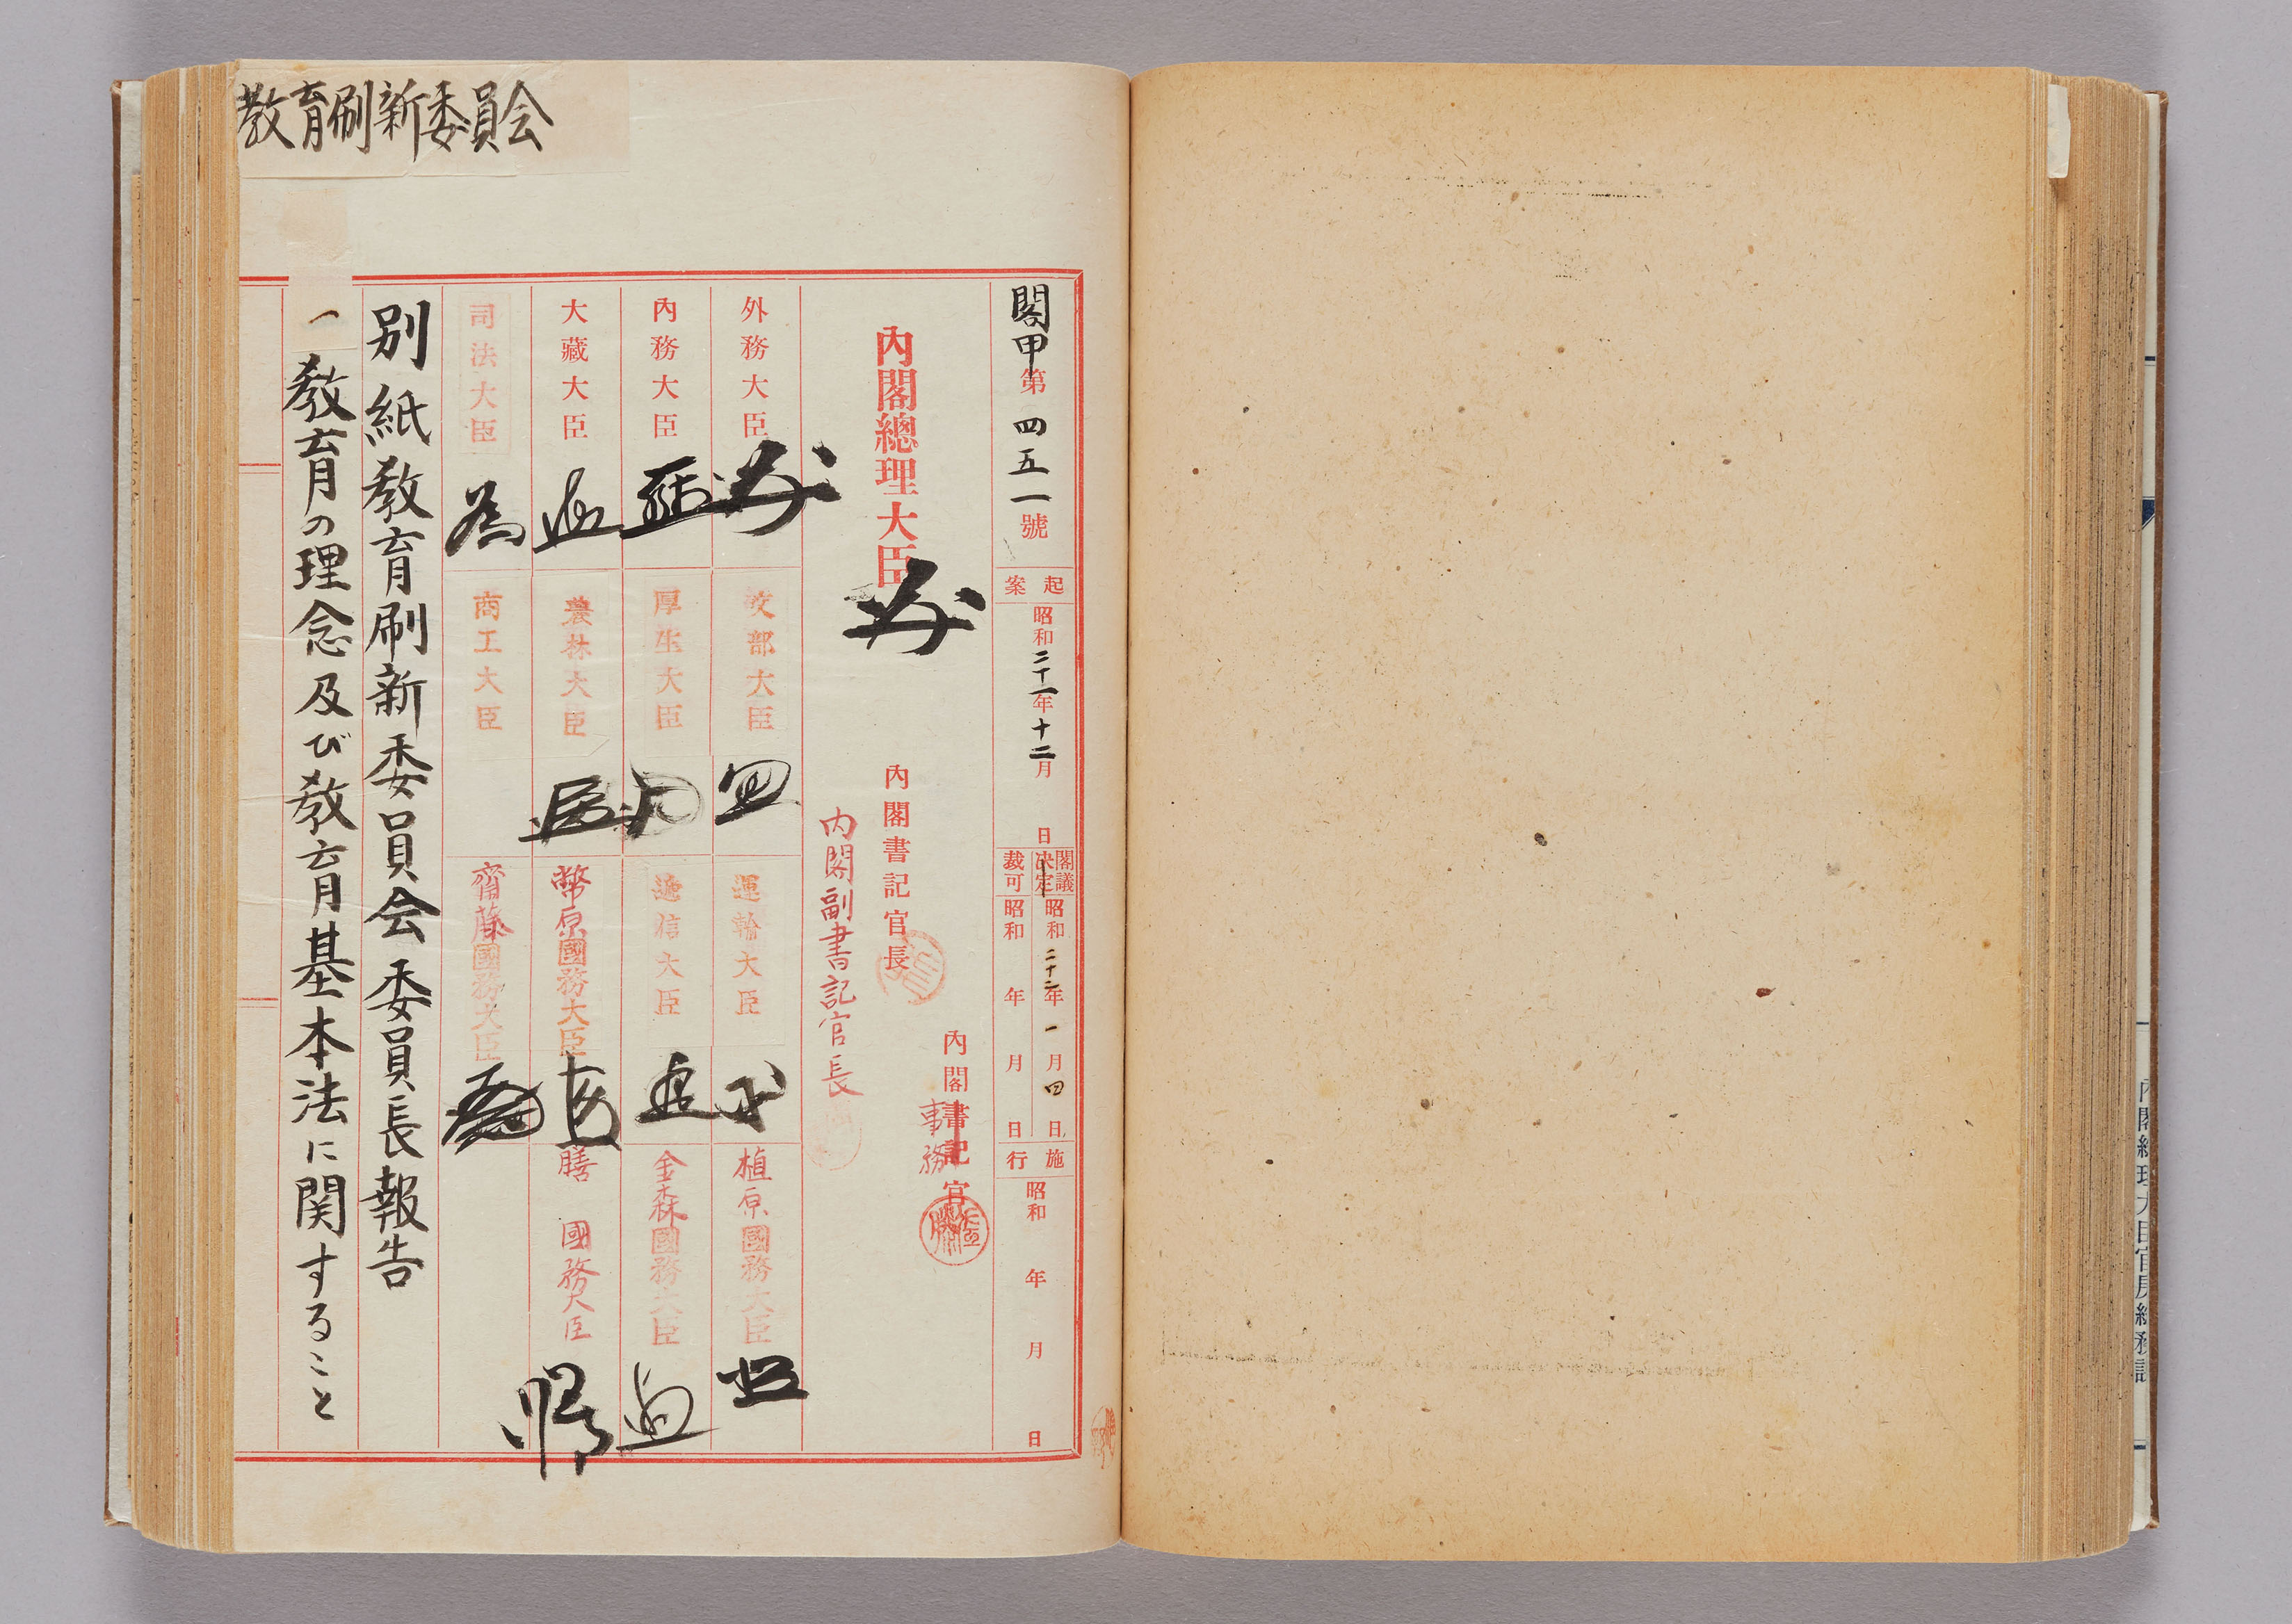 教育刷新委員会
閣甲第四五一號
起案 昭和二十一年十二月 日
閣議決定 昭和二十二年一月四日
裁可 昭和 年 月 日
施行 昭和 年 月 日
內閣總理大臣
內閣書記官長
內閣書記官
事務
内閣副書記官長
外務大臣
文部大臣
運輸大臣
植原國務大臣
內務大臣
厚生大臣
逓信大臣
金森國務大臣
大藏大臣
農林大臣
幣原國務大臣
膳 國務大臣
司法大臣
商工大臣
齋藤國務大臣
別紙教育刷新委員会委員長報告
一 教育の理念及び教育基本法に関すること